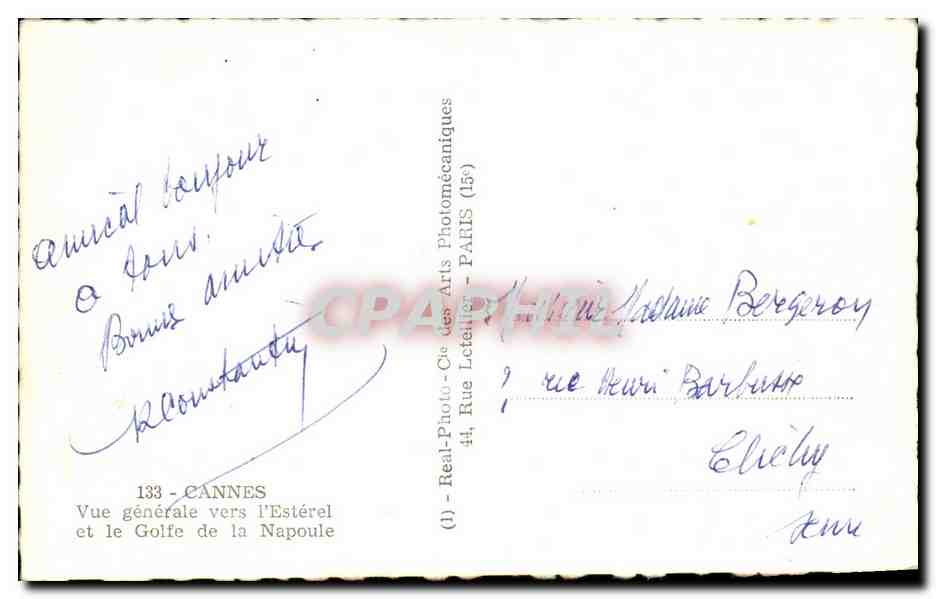 amical bonjour
a tous.
Bonne amitié
RConstantin
133 - CANNES
Vue générale vers l'Estérel
et le Golfe de la Napoule
(1) - Real-Photo - Cie des Arts Photomécaniques
44, Rue Letellier - PARIS (15e)
CPAPHIL
Monsieur Madame Bergeron
rue Henri Barbusse
Clichy
Seine